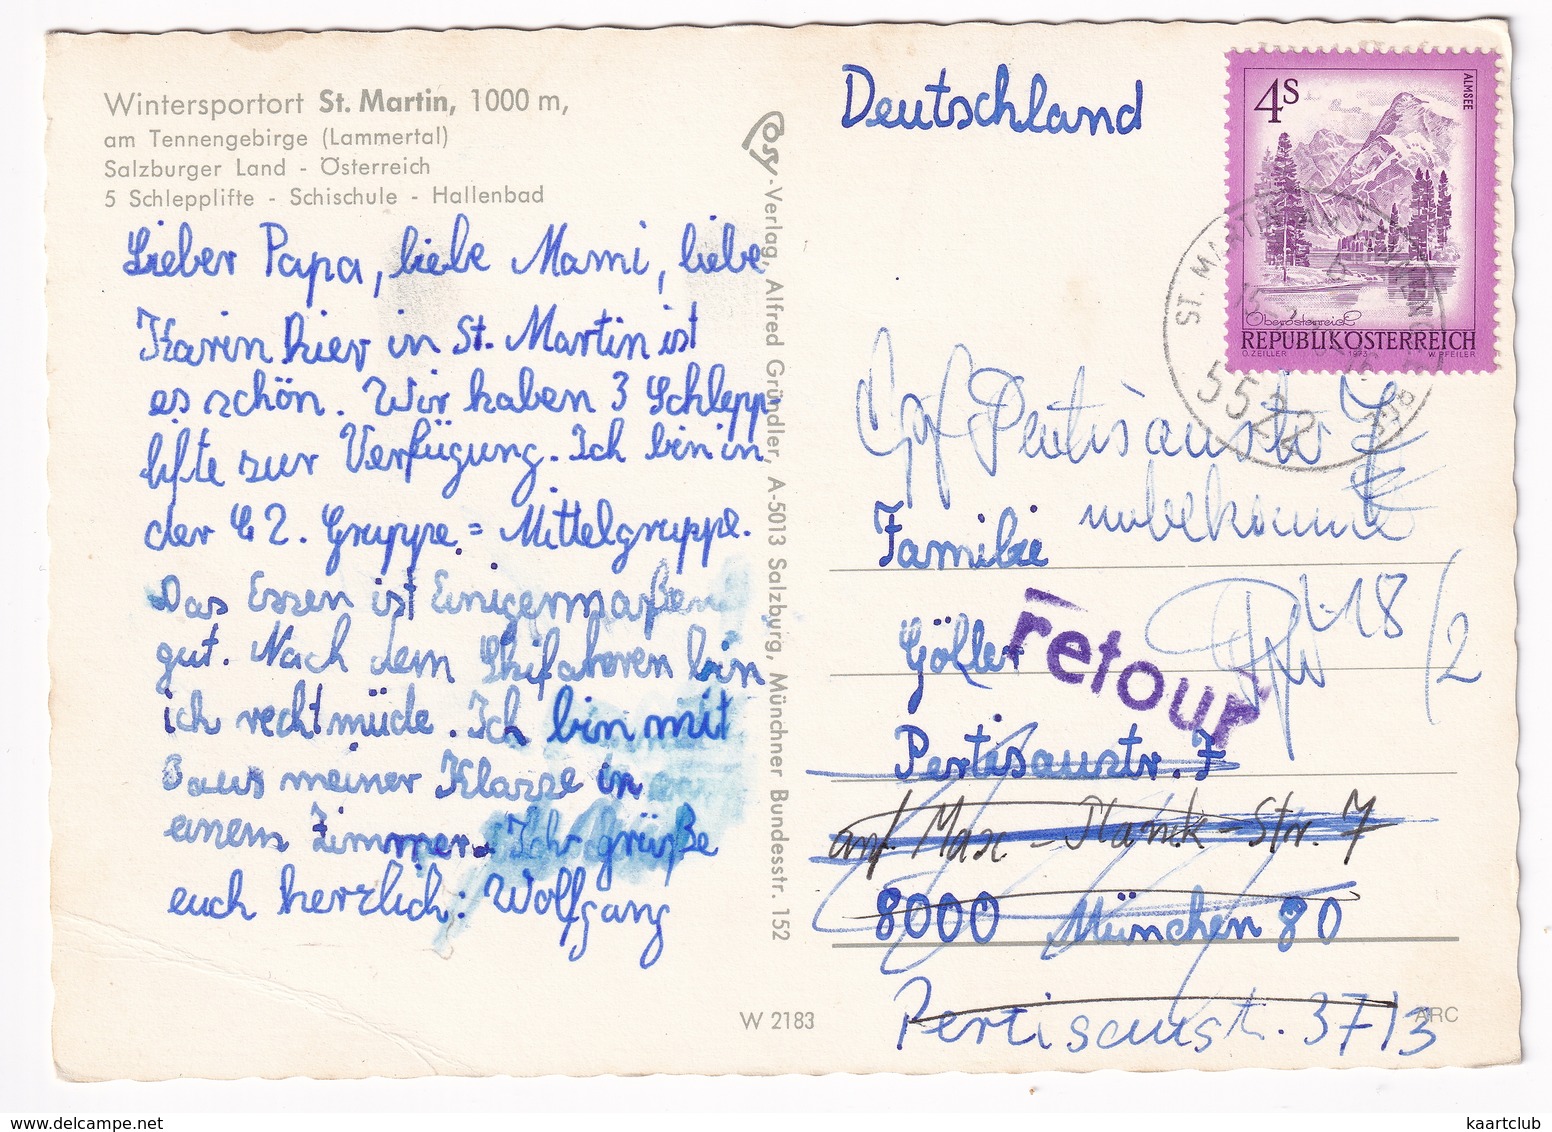 Wintersportort St. Martin, 1000 m,
am Tennengebirge (Lammertal)
Salzburger Land - Österreich
5 Schlepplifte - Schischule - Hallenbad
Lieber Papa, liebe Mami, liebe
Karin hier in St. Martin ist
es schön. Wir haben 3 Schlepp-
lifte zur Verfügung. Ich bin in
der 2. Gruppe = Mittelgruppe.
Das Essen ist Einigermaßen
gut. Nach dem Skifahren bin
ich recht müde. Ich bin mit
3 aus meiner Klasse in
einem Zimmer. Ich grüße
euch herzlich: Wolfgang
Cosy-Verlag, Alfred Gründler, A-5013 Salzburg, Münchner Bundesstr. 152
W 2183
Deutschland
4S
ALMSEE
Oberösterreich
REPUBLIK ÖSTERREICH
O. ZEILLER 1973 W. PFEILER
ST. MARTIN
5522
Pertisaustr 7
unbekannt
Familie
18/2
Göller
retour
Pertisaustr. 7
auf Max-Planck-Str. 7
8000 München 80
Pertisaust. 37/3
ARC
kaartclub